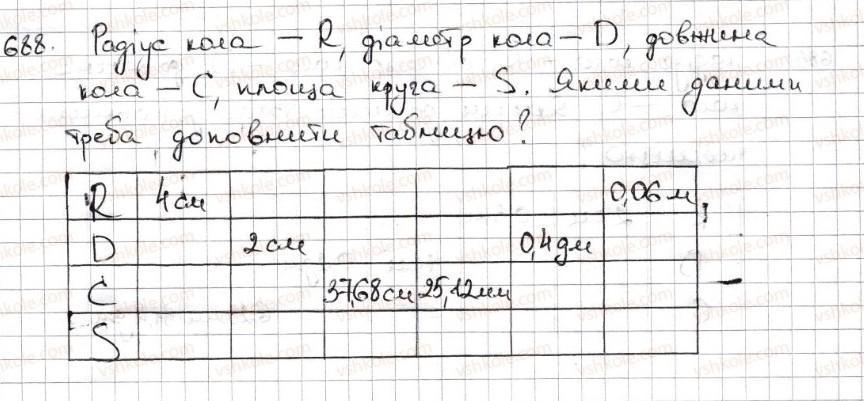 688. Радіус кола – R, діаметр кола – D, довжина
кола – С, площа круга – S. Якими даними
треба доповнити таблицю?
R 4 см 0,06 м
D 2 см 0,4 дм
С 37,68 см 25,12 мм
S